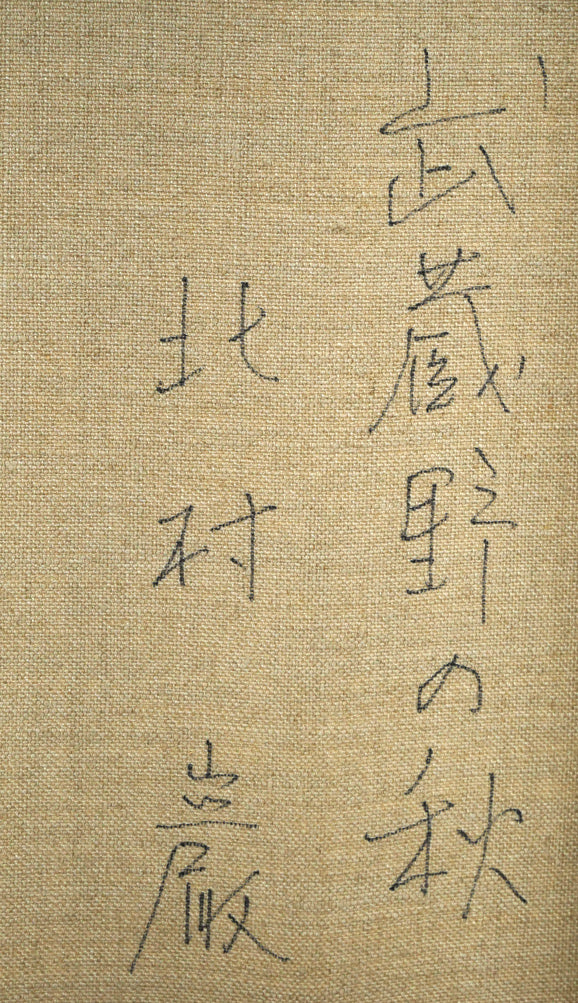 武蔵野の秋
北村巖